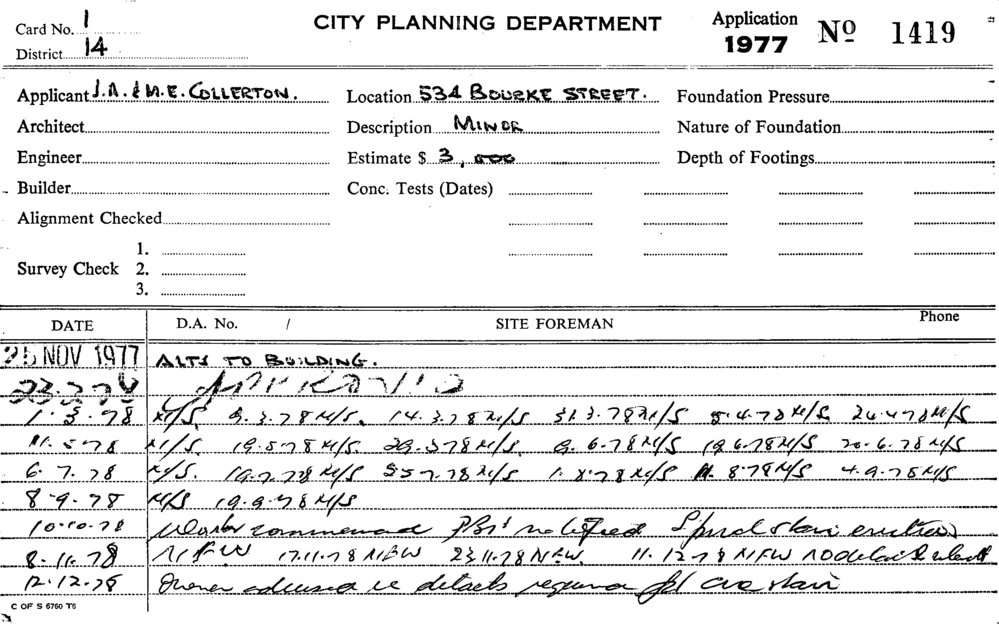 Card No. 1
District 14
CITY PLANNING DEPARTMENT
Application 1977 Nº 1419
Applicant J.A. & M.E. COLLERTON. Location 534 BOURKE STREET. Foundation Pressure
Architect Description MINOR Nature of Foundation
Engineer Estimate $ 3,000 Depth of Footings
Builder Conc. Tests (Dates)
Alignment Checked
1.
Survey Check 2.
3.
DATE D.A. No. / SITE FOREMAN Phone
25 NOV 1977 ALTS TO BUILDING.
23.2.78 APPROVED
1.3.78 N/S. 9.3.78 N/S. 14.3.78 N/S 31.3.78 N/S 5.4.78 N/S 24.4.78 N/S
11.5.78 N/S. 19.5.78 N/S. 29.5.78 N/S. 9.6.78 N/S 19.6.78 N/S 20.6.78 N/S
6.7.78 N/S. 19.7.78 N/S 7.78 N/S 1.8.78 N/S 11.8.78 N/S 4.9.78 N/S
8.9.78 N/S 19.9.78 N/S
10.10.78 Works commenced notified Spiral stair
8.11.78 NFW 17.11.78 NFW 23.11.78 NFW. 11.12.78 NFW NO details
12.12.78 Owner advised re details required stair
C OF S 6760 T6